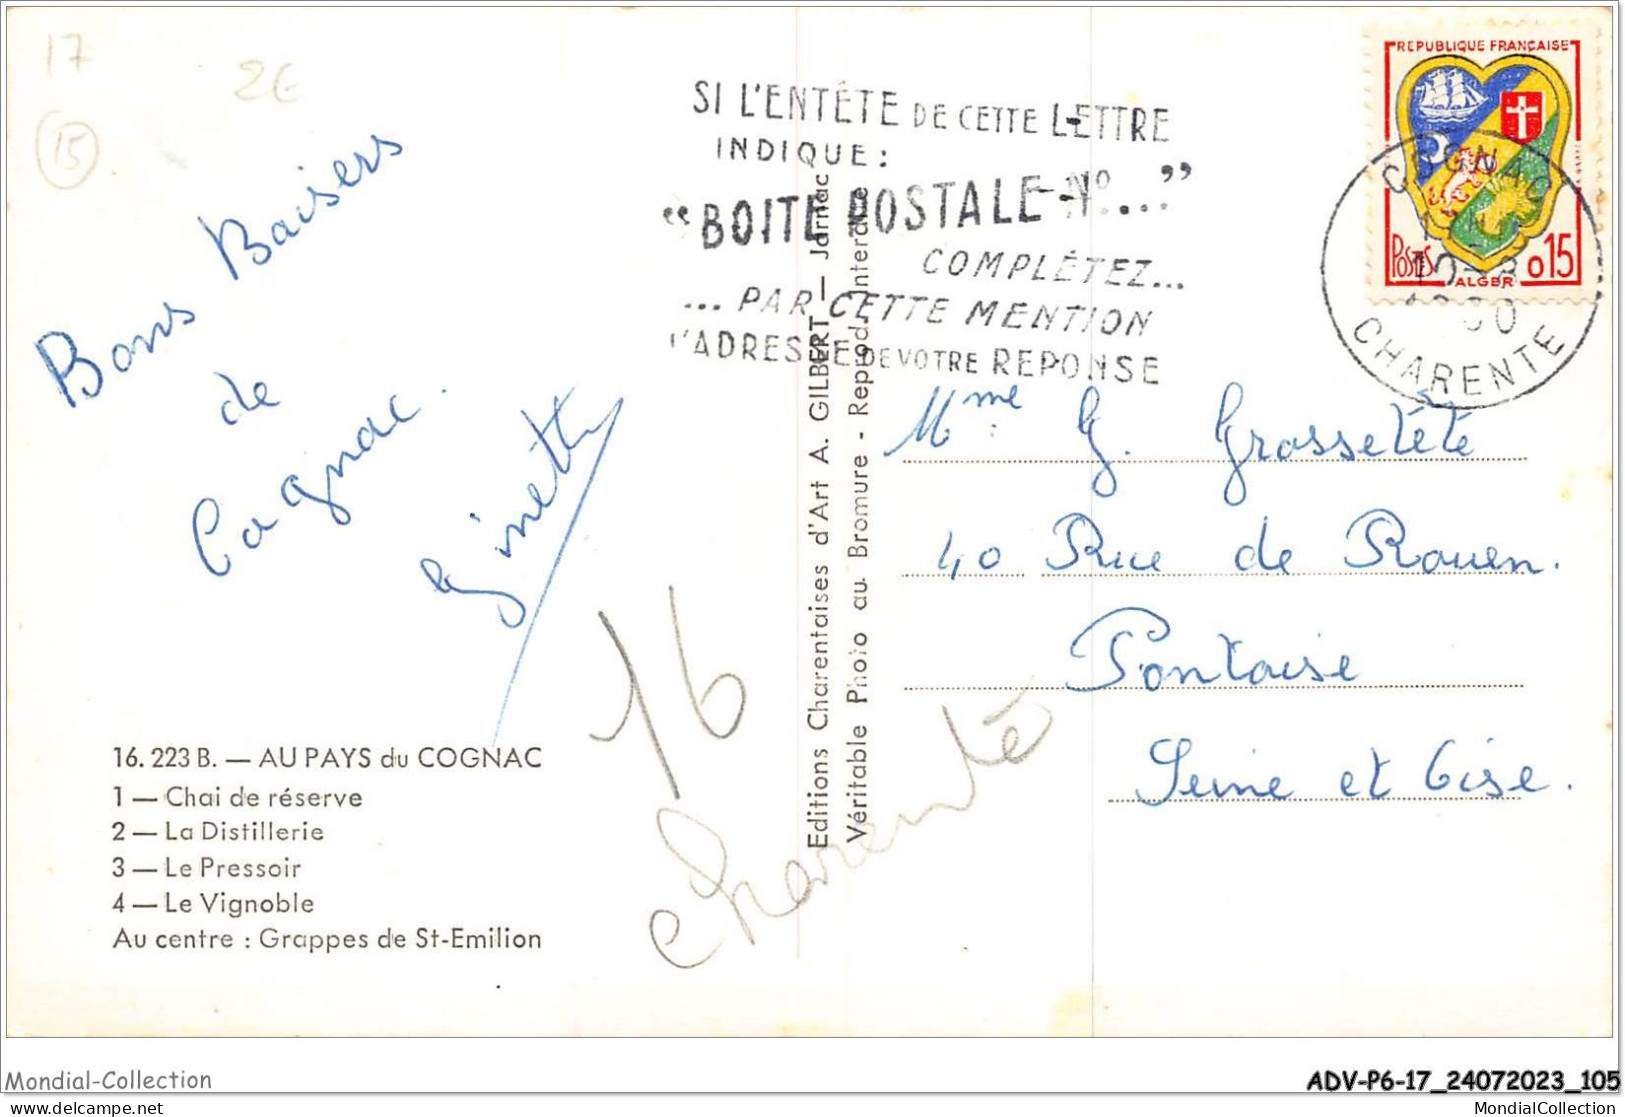 17
2€
15
Bons Baisers
de
Cognac.
Ginette
16. 223 B. — AU PAYS du COGNAC
1 — Chai de réserve
2 — La Distillerie
3 — Le Pressoir
4 — Le Vignoble
Au centre : Grappes de St-Emilion
16
Charente
Editions Charentaises d'Art A. GILBERT — Jarnac
Véritable Photo au Bromure - Reprod. Interdite
SI L'ENTÊTE DE CETTE LETTRE
INDIQUE :
“BOITE POSTALE N°...”
COMPLÉTEZ...
... PAR CETTE MENTION
L'ADRESSE DE VOTRE REPONSE
REPUBLIQUE FRANÇAISE
POSTES
ALGER
0,15
COGNAC
CHARENTE
Mme G. Grossetête
40 Rue de Rouen.
Pontoise
Seine et Oise.
Mondial-Collection
delcampe.net
ADV-P6-17_24072023_105
MondialCollection